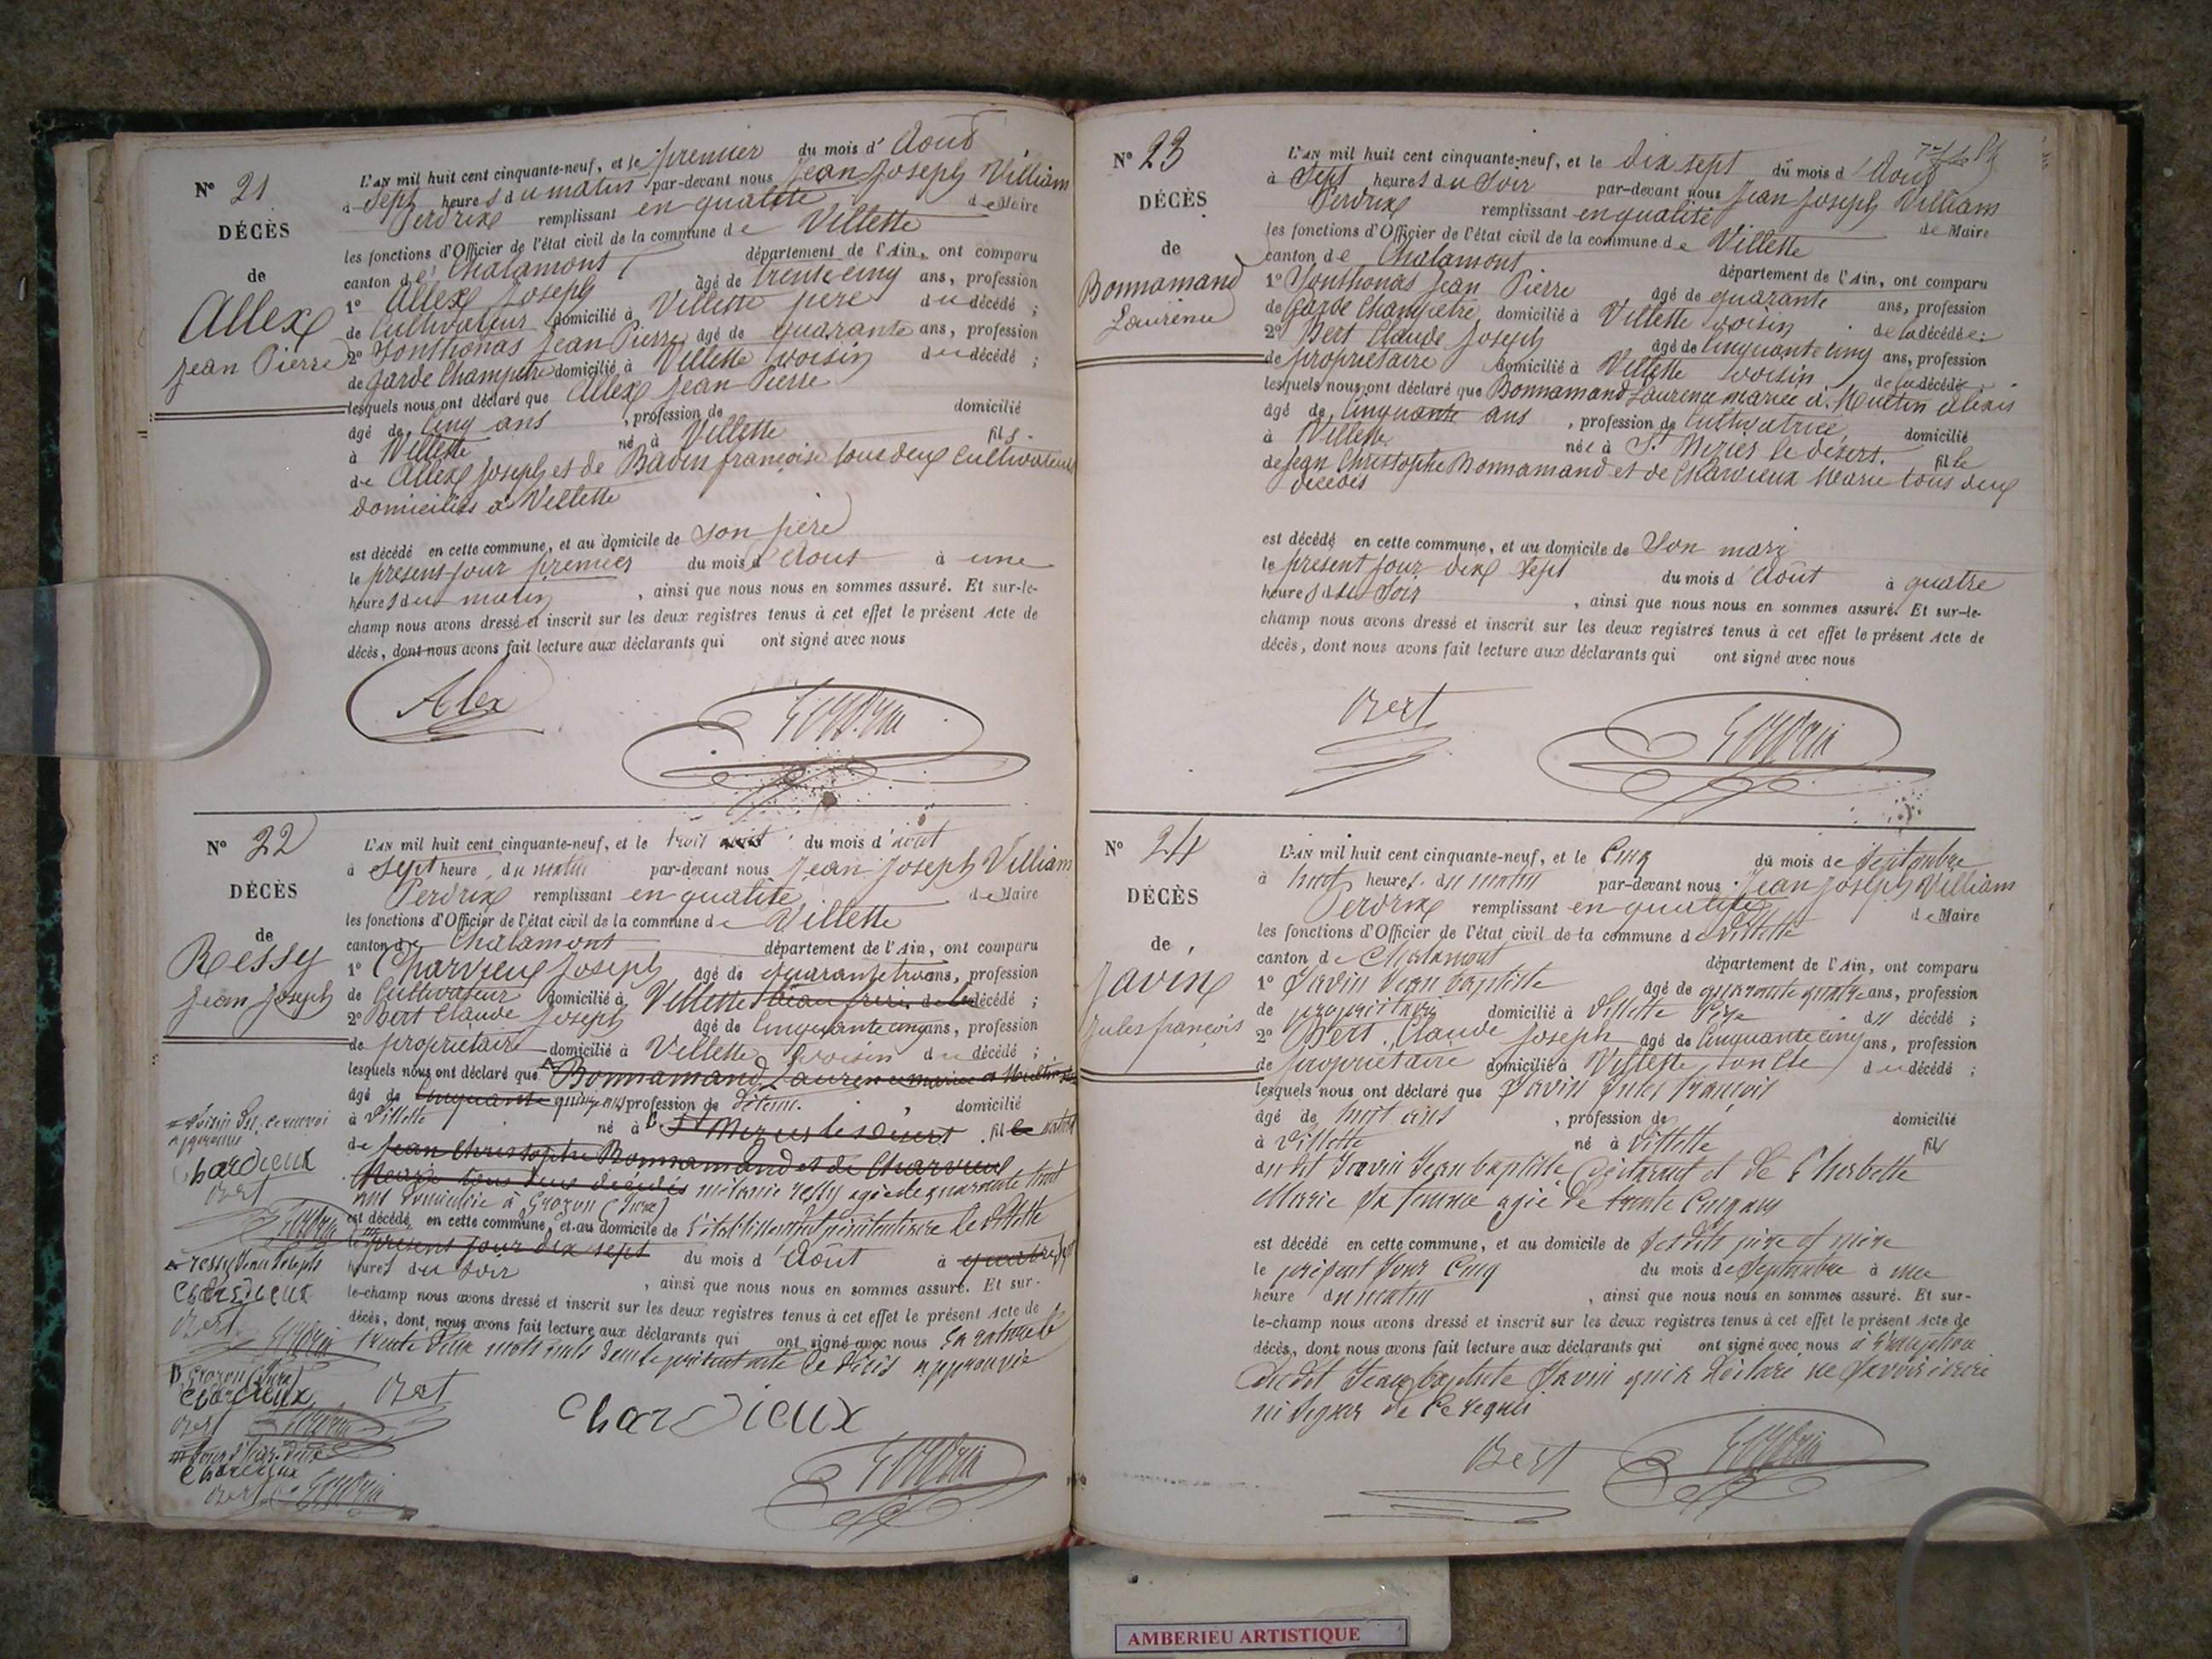 N° 21
DÉCÈS
de
Allex
Jean Pierre
L'AN mil huit cent cinquante-neuf, et le premier du mois d' Aout
à Sept heures du matin par-devant nous Jean Joseph Villiam
Perdrix remplissant en qualité de Maire
les fonctions d'Officier de l'état civil de la commune de Villette
canton de Chalamont département de l'Ain, ont comparu
1° Allex Joseph âgé de trente cinq ans, profession
de Cultivateur domicilié à Villette père du décédé ;
2° Jonthonas Jean Pierre âgé de quarante ans, profession
de garde Champêtre domicilié à Villette voisin du décédé ;
lesquels nous ont déclaré que Allex Jean Pierre
âgé de Cinq ans , profession de domicilié
à Villette né à Villette fils
de Allex Joseph et de Badin françoise tous deux Cultivateurs
domiciliés à Villette
est décédé en cette commune, et au domicile de son père
le présent jour premier du mois d' Aout à une
heures du matin , ainsi que nous nous en sommes assuré. Et sur-le-
champ nous avons dressé et inscrit sur les deux registres tenus à cet effet le présent Acte de
décès, dont nous avons fait lecture aux déclarants qui ont signé avec nous
Alex Perdrix
N° 22
DÉCÈS
de
Ressy
Jean Joseph
L'AN mil huit cent cinquante-neuf, et le trois du mois d' aout
à sept heure du matin par-devant nous Jean Joseph Villiam
Perdrix remplissant en qualité de Maire
les fonctions d'Officier de l'état civil de la commune de Villette
canton de Chalamont département de l'Ain, ont comparu
1° Charvieux Joseph âgé de quarante trois ans, profession
de Cultivateur domicilié à Villette décédé ;
2° Bert Claude Joseph âgé de Cinquante cinq ans, profession
de propriétaire domicilié à Villette voisin du décédé ;
lesquels nous ont déclaré que Bonnamand Laurence mariée à Multin
âgé de Cinquante quinze ans profession de détenu domicilié
à Villette né à B St Mezier le desert fille
de Jean Christophe Bonnamand et de Charvieux
Marie tous deux décédés mélanie ressy agée de quarante huit
ans domiciliée à Grozon (Jura)
est décédé en cette commune, et au domicile de l'établissement pénitentiaire de Villette
le présent jour dix sept du mois d' Août à quatre
heures du soir , ainsi que nous nous en sommes assuré. Et sur-
le-champ nous avons dressé et inscrit sur les deux registres tenus à cet effet le présent Acte de
décès, dont nous avons fait lecture aux déclarants qui ont signé avec nous
trente deux mots nuls dans le présent acte de décès approuvés
Chardieux
Bert
Perdrix
ressy Jean Joseph
Chardieux
Bert
Perdrix
B Grozon (Jura)
Chardieux
Bert Perdrix
Chardieux
Bert Perdrix
Bert
Chardieux
Perdrix
N° 23
DÉCÈS
de
Bonnamand
Laurence
L'AN mil huit cent cinquante-neuf, et le dix sept du mois d' Aout
à Sept heures du Soir par-devant nous Jean Joseph Villiam
Perdrix remplissant en qualité de Maire
les fonctions d'Officier de l'état civil de la commune de Villette
canton de Chalamont département de l'Ain, ont comparu
1° Jonthonas Jean Pierre âgé de quarante ans, profession
de Garde Champetre domicilié à Villette voisin de la décédée ;
2° Bert Claude Joseph âgé de Cinquante cinq ans, profession
de propriétaire domicilié à Villette voisin de la décédé ;
lesquels nous ont déclaré que Bonnamand Laurence mariée à Multin alexis
âgé de Cinquante ans , profession de Cultivatrice domicilié
à Villette née à St Mezier le désert. fille
de Jean Christophe Bonnamand et de Charvieux Marie tous deux
décédés
est décédé en cette commune, et au domicile de Son mari
le présent jour dix sept du mois d' Août à quatre
heures du Soir , ainsi que nous nous en sommes assuré. Et sur-le-
champ nous avons dressé et inscrit sur les deux registres tenus à cet effet le présent Acte de
décès, dont nous avons fait lecture aux déclarants qui ont signé avec nous
Bert Perdrix
N° 24
DÉCÈS
de
Javin
Jules françois
L'AN mil huit cent cinquante-neuf, et le Cinq du mois de Septembre
à huit heures du matin par-devant nous Jean Joseph Villiam
Perdrix remplissant en qualité de Maire
les fonctions d'Officier de l'état civil de la commune de Villette
canton de Chalamont département de l'Ain, ont comparu
1° Javin Jean baptiste âgé de quarante quatre ans, profession
de propriétaire domicilié à Villette Père du décédé ;
2° Bert Claude Joseph âgé de Cinquante cinq ans, profession
de propriétaire domicilié à Villette du décédé ;
lesquels nous ont déclaré que Javin Jules françois
âgé de huit ans , profession de domicilié
à Villette né à Villette fils
dudit Javin Jean baptiste Déclarant et de Cherbette
Marie sa femme agée de trente Cinq ans
est décédé en cette commune, et au domicile de Sesdits père et mère
le présent jour Cinq du mois de Septembre à une
heure du matin , ainsi que nous nous en sommes assuré. Et sur-
le-champ nous avons dressé et inscrit sur les deux registres tenus à cet effet le présent Acte de
décès, dont nous avons fait lecture aux déclarants qui ont signé avec nous à l'exception
dudit Jean baptiste Javin qui a déclaré ne Savoir écrire
ni signer de Ce requis
Bert Perdrix
AMBERIEU ARTISTIQUE